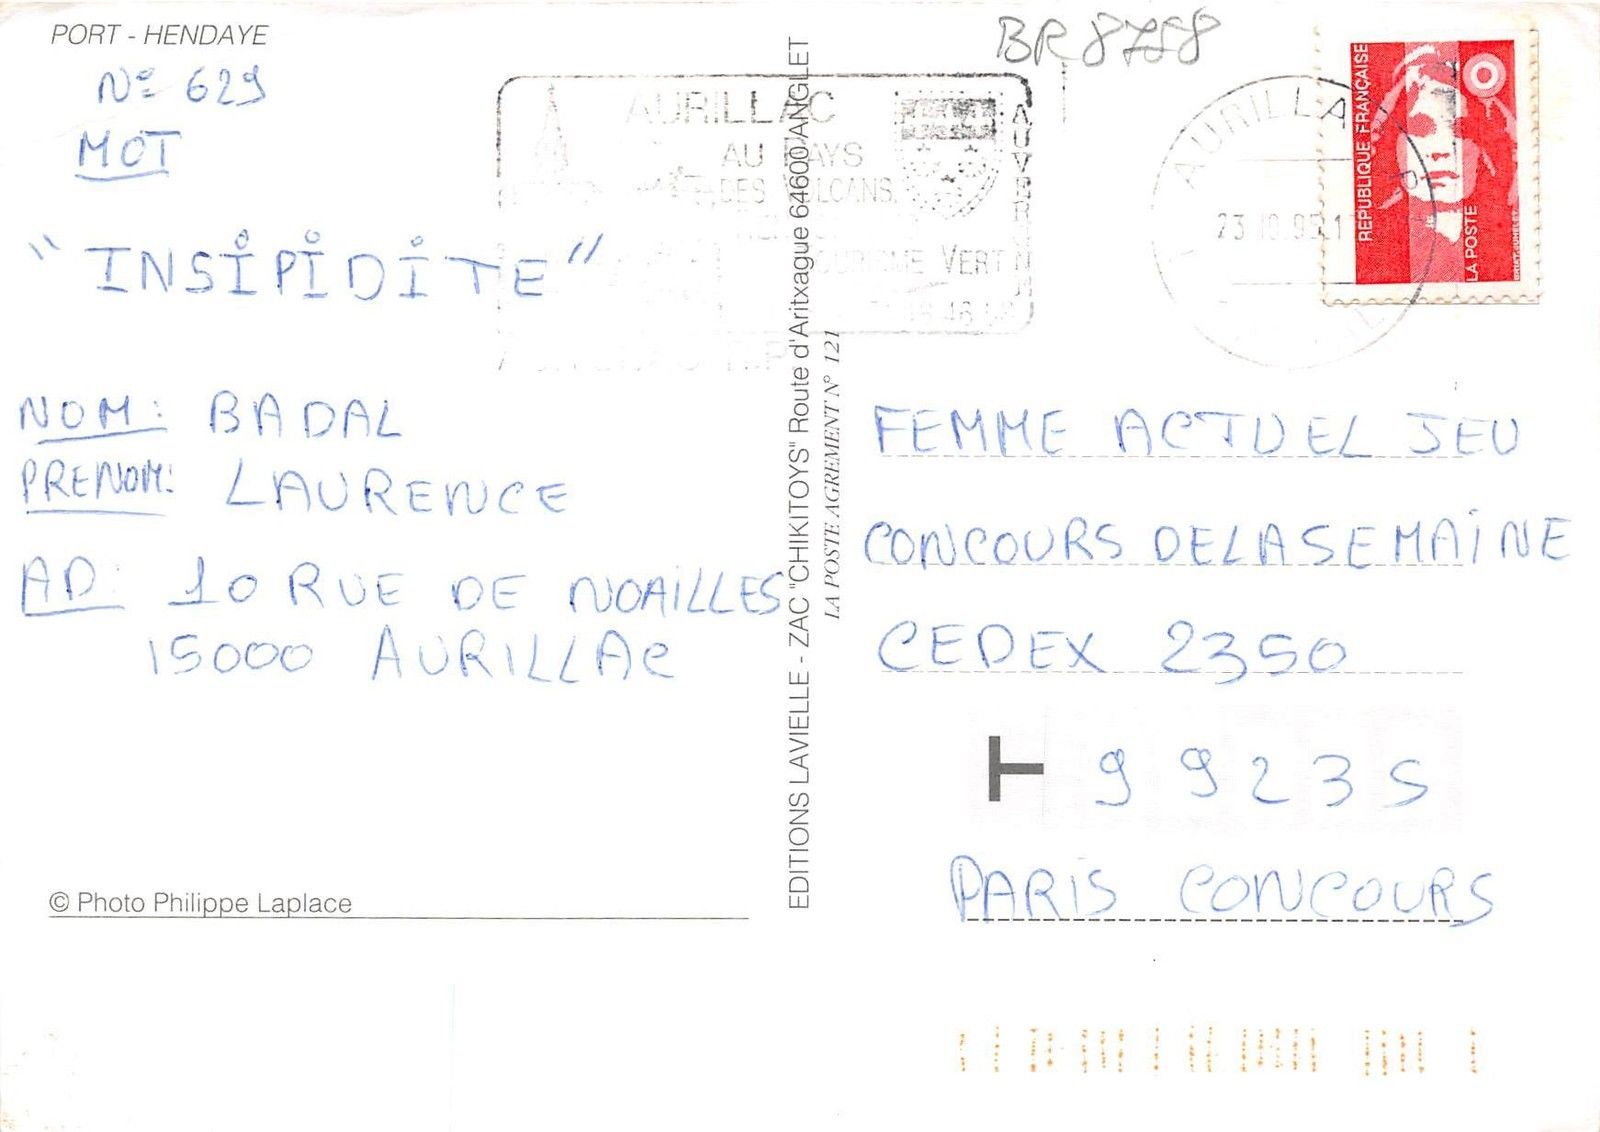 PORT - HENDAYE
BR 8758
Nº 629
MOT
"INSIPIDITE"
NOM: BADAL
PRENOM: LAURENCE
AD: 10 RUE DE NOAILLES
15000 AURILLAC
© Photo Philippe Laplace
EDITIONS LAVIELLE - ZAC "CHIKITOYS" Route d'Aritxague 64600 ANGLET
LA POSTE AGREMENT N° 121
AURILLAC
AU PAYS
DES VOLCANS
TOURISME VERT
AUVERGNE
AURILLAC
23 10 95
REPUBLIQUE FRANÇAISE
LA POSTE
FEMME ACTUEL JEU
CONCOURS DE LA SEMAINE
CEDEX 2350
T 99235
PARIS CONCOURS